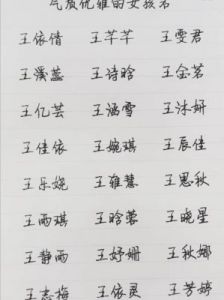 气质优雅的女孩名
王依倩 王芊芊 王雯君
王溪蕊 王诗晗 王金茗
王亿芸 王涵雪 王沐妍
王佳依 王婉琪 王辰佳
王乐娆 王雅慧 王思秋
王雨琪 王晗蓉 王晓星
王静雨 王妤姗 王秋娜
王志梅 王依灵 王芳婷